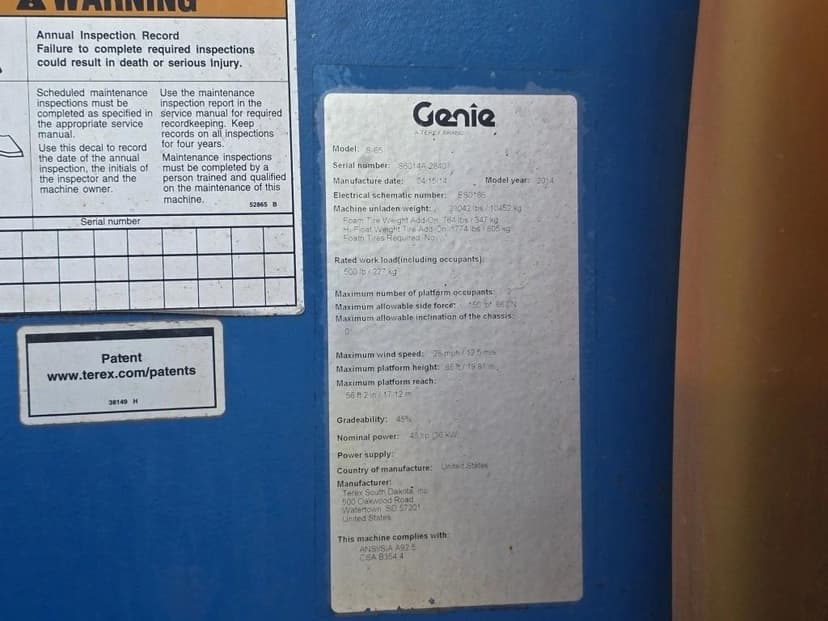 WARNING
Annual Inspection Record
Failure to complete required inspections
could result in death or serious injury.
Scheduled maintenance
inspections must be
completed as specified in
the appropriate service
manual.
Use this decal to record
the date of the annual
inspection, the initials of
the inspector and the
machine owner.
Use the maintenance
inspection report in the
service manual for required
recordkeeping. Keep
records on all inspections
for four years.
Maintenance inspections
must be completed by a
person trained and qualified
on the maintenance of this
machine.
52865 B
Serial number
Patent
www.terex.com/patents
38149 H
Genie
A TEREX BRAND
Model: S-65
Serial number:
Manufacture date: 04/15/14 Model year: 2014
Electrical schematic number: ES0186
Machine unladen weight: 23042 lbs / 10452 kg
Foam Tire Weight Add-On: 764 lbs / 347 kg
Hi-Float Weight Tire Add-On: 1774 lbs / 805 kg
Foam Tires Required: No
Rated work load(including occupants):
500 lb / 227 kg
Maximum number of platform occupants: 2
Maximum allowable side force: 150 lbf
Maximum allowable inclination of the chassis:
0
Maximum wind speed: 28 mph / 12.5 m/s
Maximum platform height: 65 ft / 19.81 m
Maximum platform reach:
56 ft 2 in / 17.12 m
Gradeability: 45%
Nominal power: 48 hp (36 kW)
Power supply:
Country of manufacture: United States
Manufacturer:
Terex South Dakota, Inc
500 Oakwood Road
Watertown, SD 57201
United States
This machine complies with:
ANSI/SIA A92.5
CSA B354.4